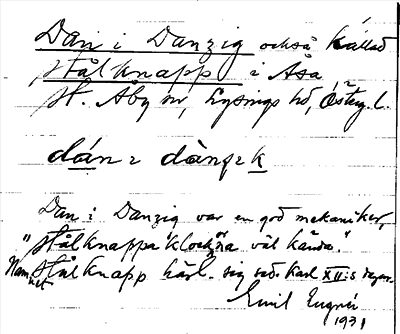 Dan i Danzig också kallad
Stålknapp i Åsa
St. Åby sn, Lysings hd, Östg. l.
dán i dànzik
Dan i Danzig var en god mekaniker,
"Stålknappa" klockorna väl kända."
Namnet Stålknapp härl. sig ned. Karl XII:s
Emil
1931